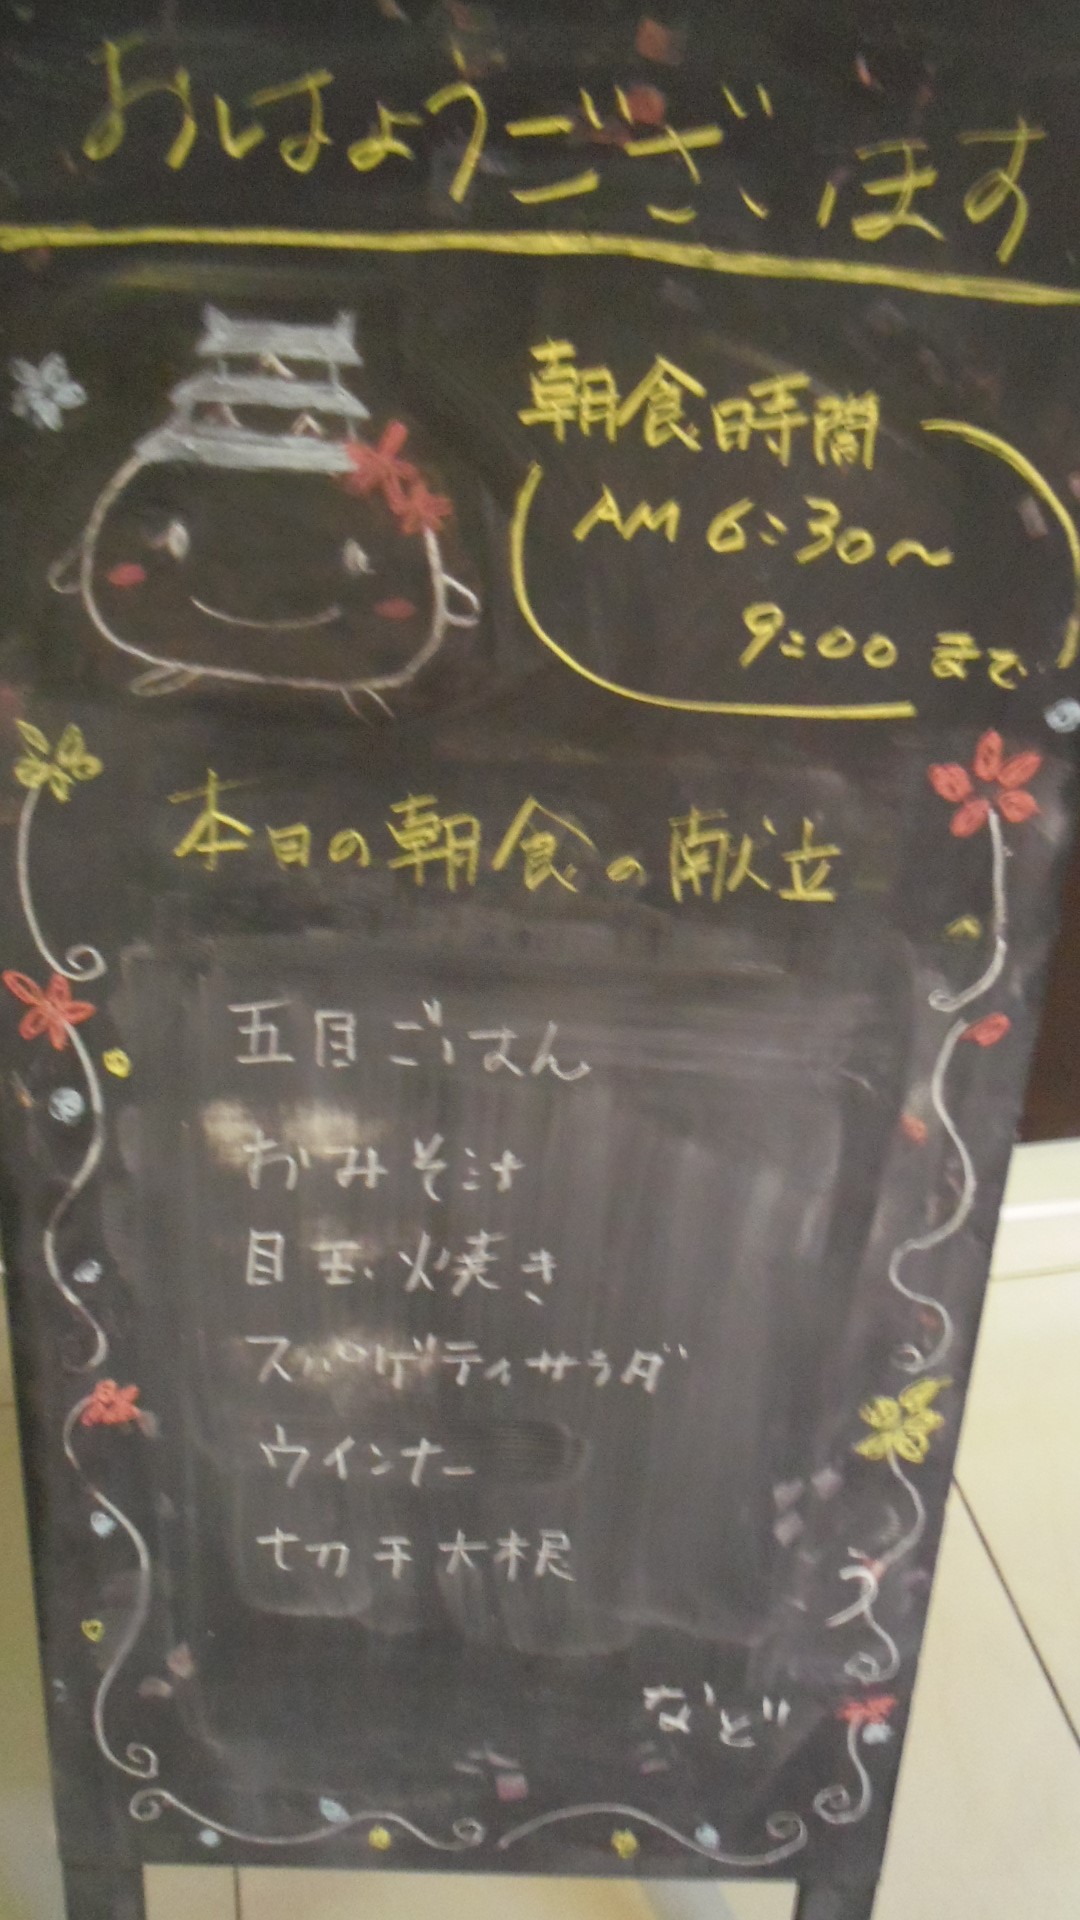 おはようございます
朝食時間
AM 6:30～
9:00 まで
本日の朝食の献立
五目ごはん
おみそ汁
目玉焼き
スパゲティサラダ
ウインナー
切干大根
など